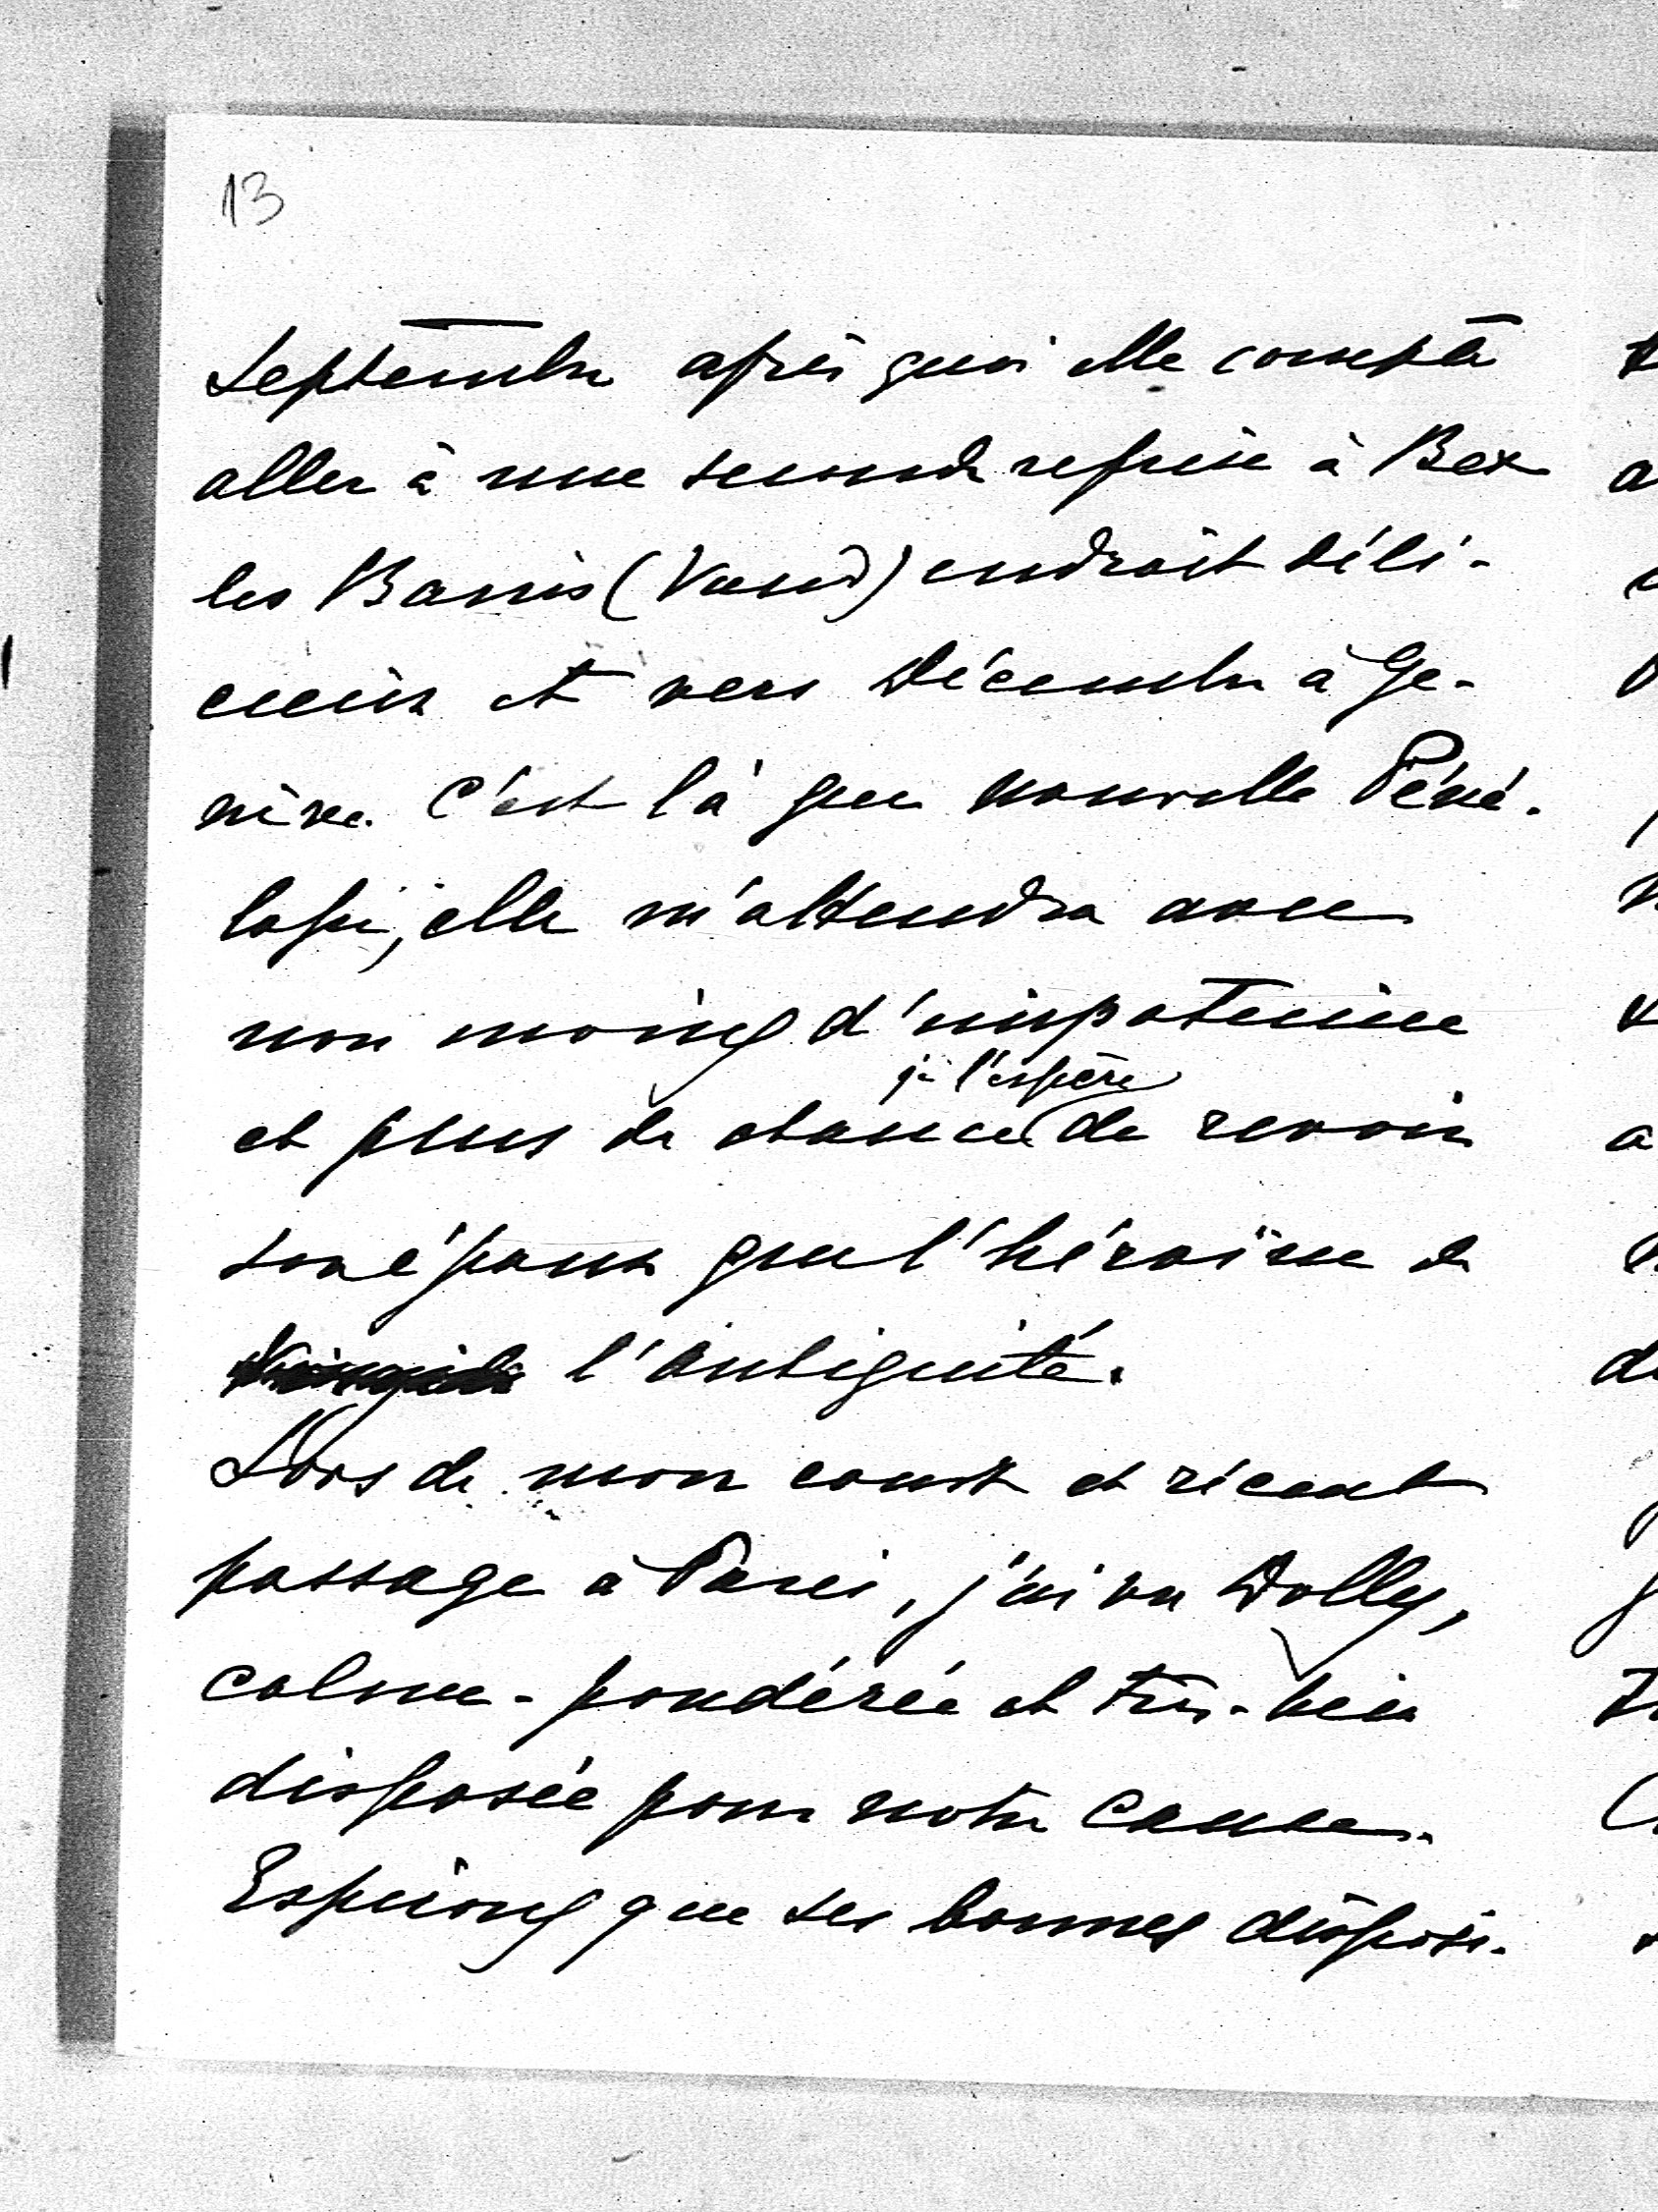 13
Septembre après quoi elle compte
aller à une seconde reprise à Bex
les Bains (Vaud) endroit déli-
cieux et vers Décembre à Ge-
nève. C'est là que nouvelle Péné-
lope, elle m'attendra avec
non moins d'impatience
je l'espère
et plus de chance de revoir
son époux que l'héroïne de
l'antiquité.
Lors de mon court et récent
passage à Paris, j'ai vu Dolly,
calme - pondérée et très-bien
disposée pour notre Cause.
Espérons que ses bonnes disposi-